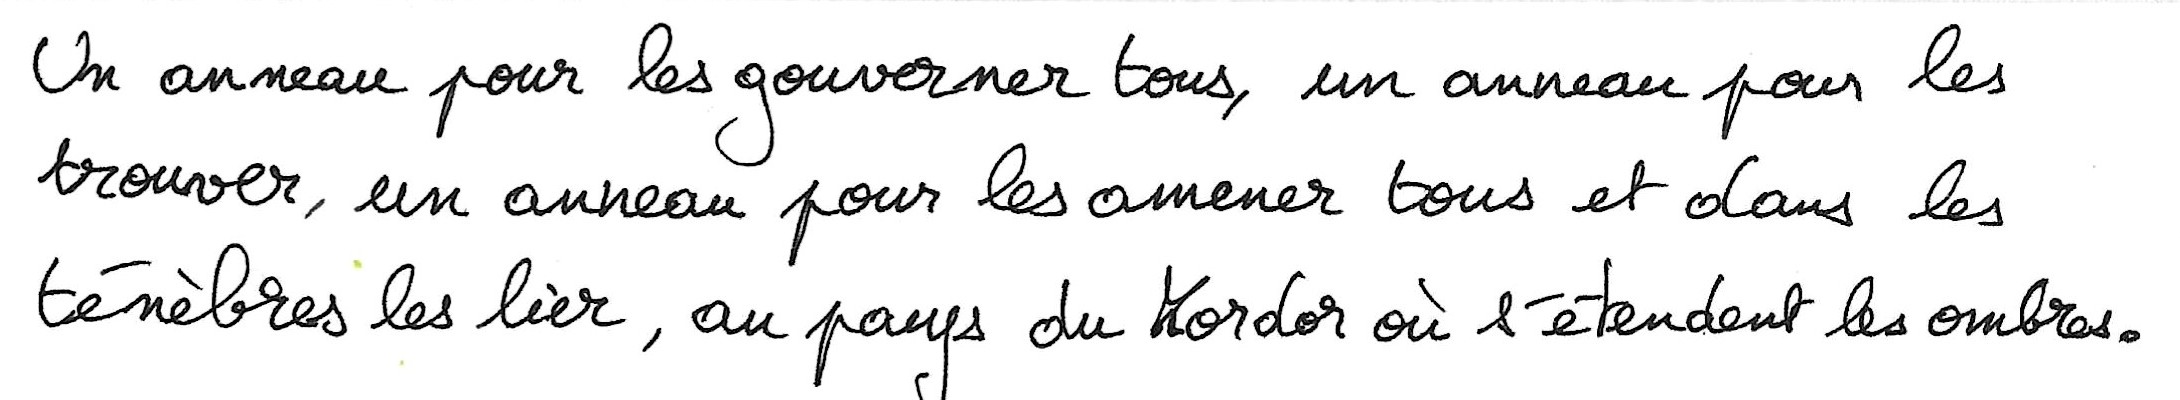 Un anneau pour les gouverner tous, un anneau pour les
trouver, un anneau pour les amener tous et dans les
ténèbres les lier, au pays du Mordor où s'étendent les ombres.